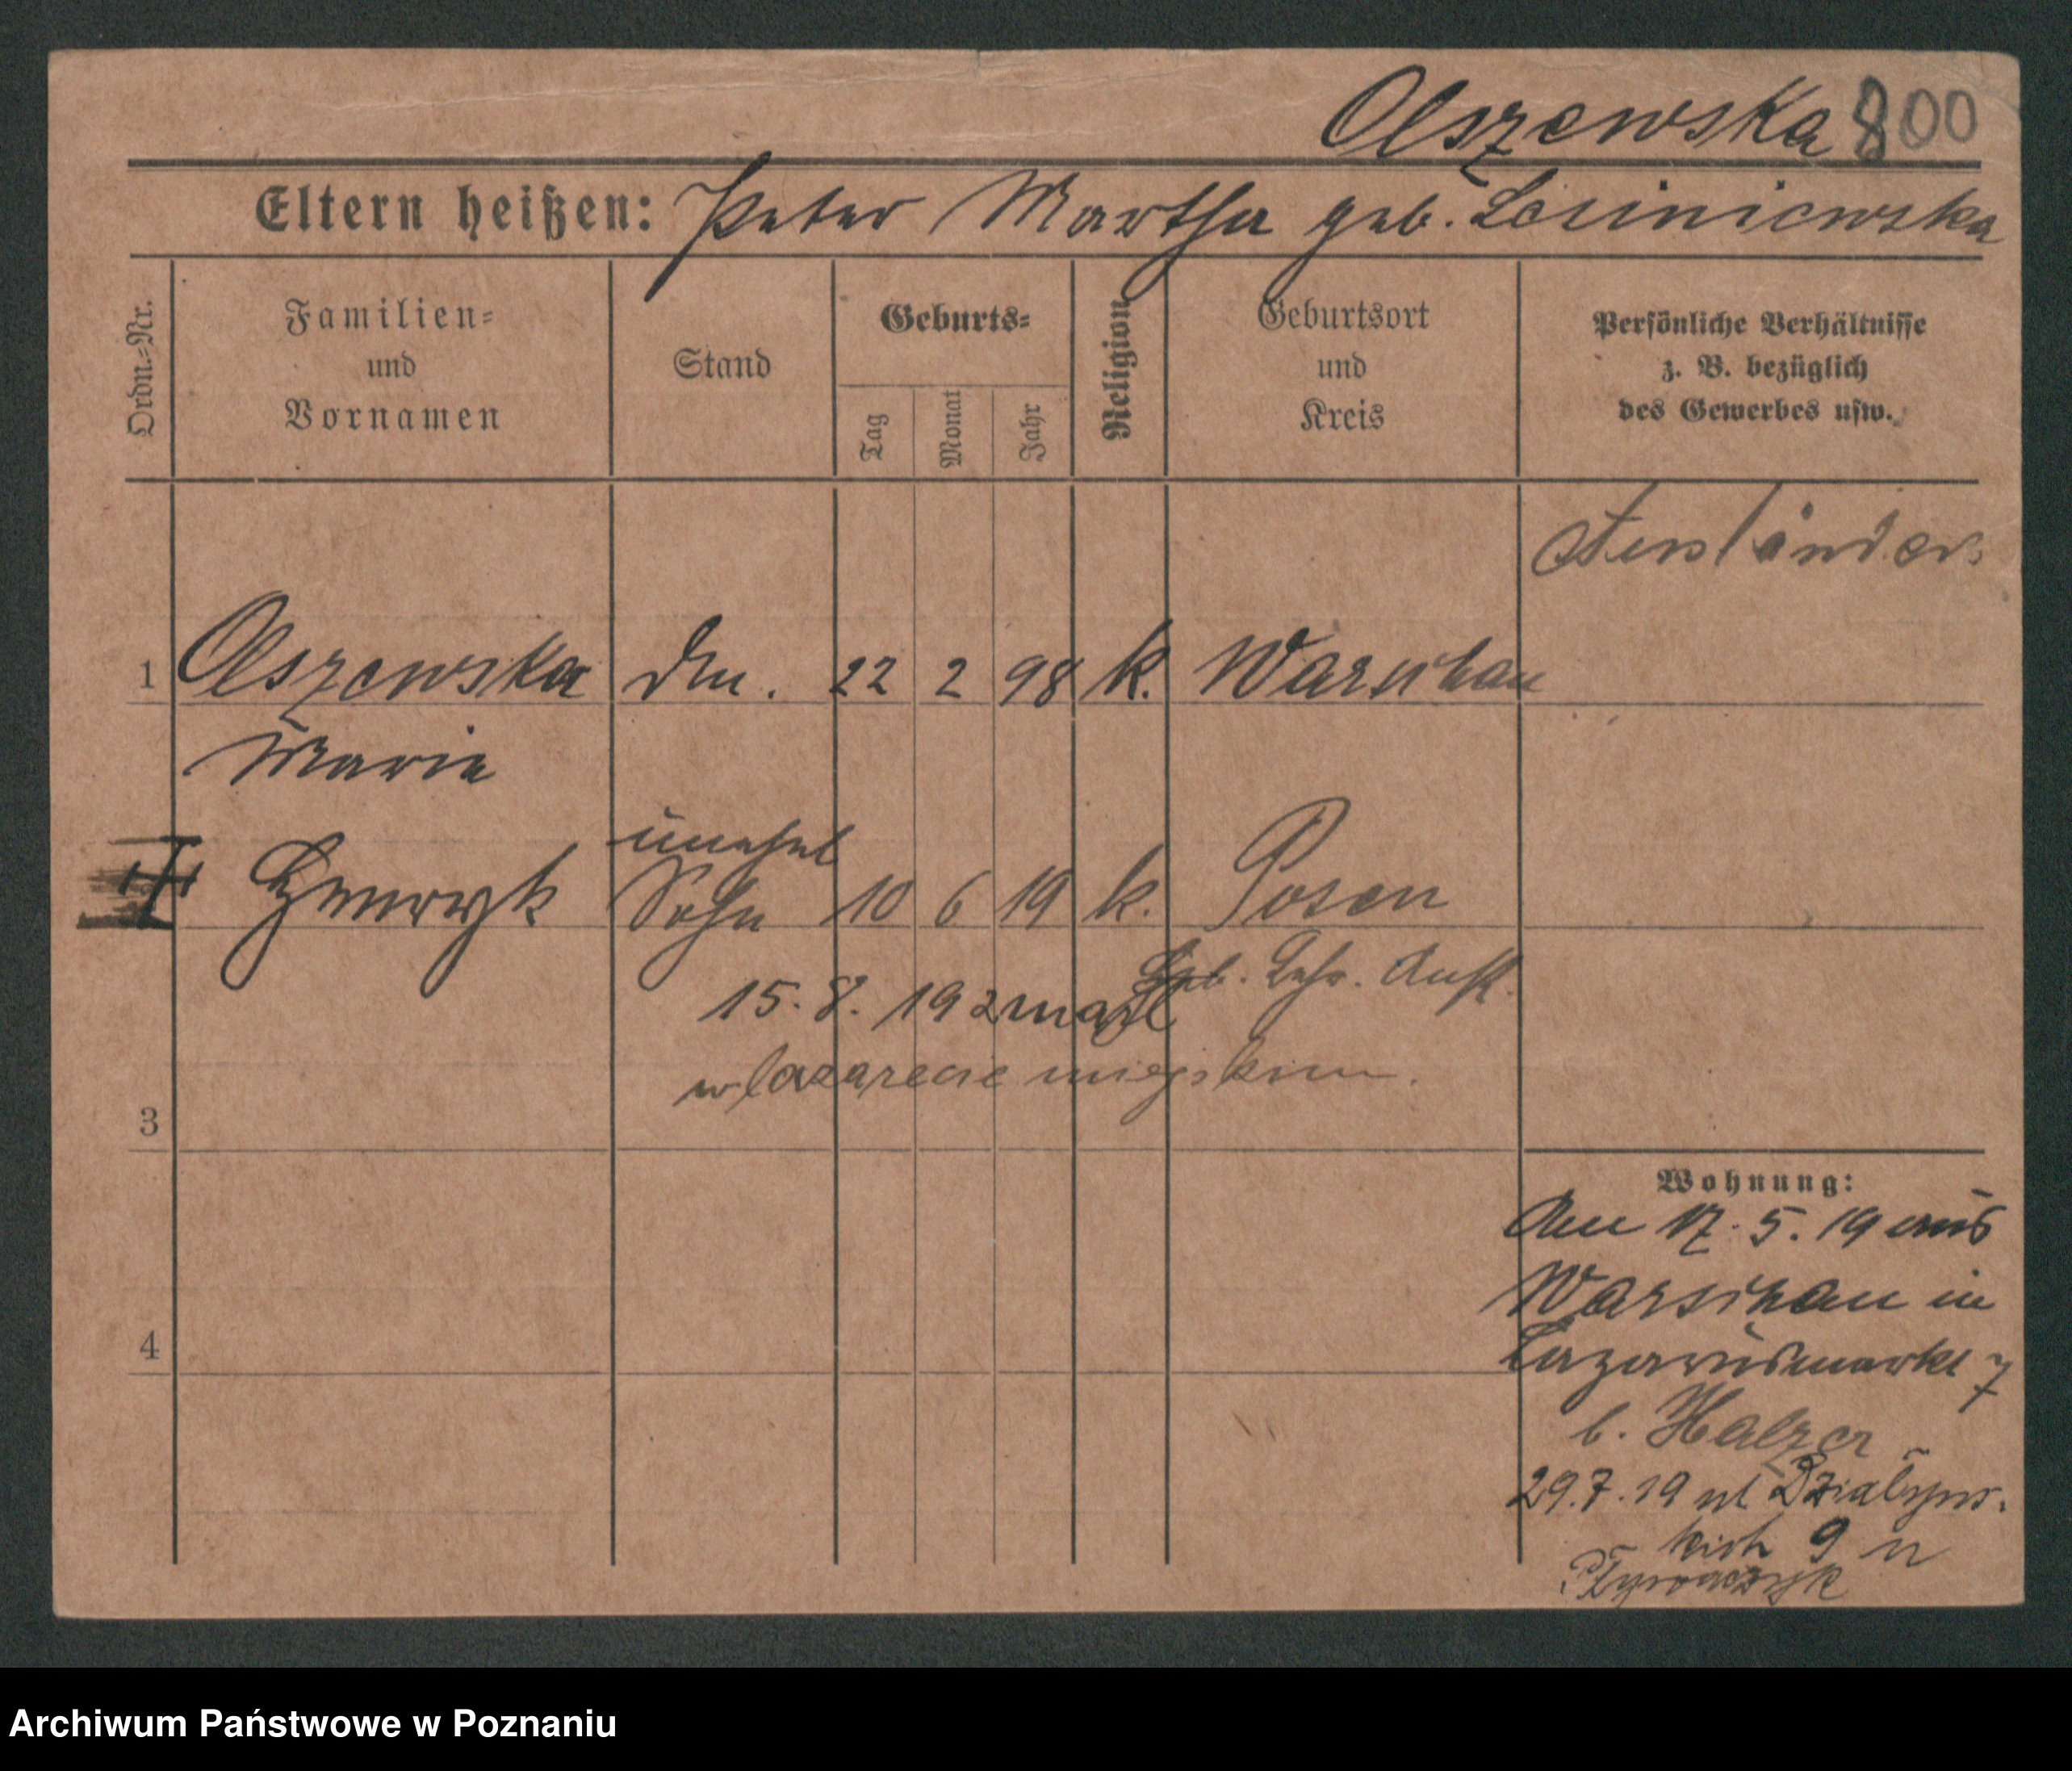 Olszewska 800
Eltern heißen: Peter Martha geb. Lesiniewska
Ordn.-Nr.
Familien-
und
Vornamen
Stand
Geburts-
Tag
Monat
Jahr
Religion
Geburtsort
und
Kreis
Persönliche Verhältnisse
z. B. bezüglich
des Gewerbes usw.
Ausländer.
1 Olszewska 22 2 98 k. Warschau
Marie
unehel
Henryk Sohn 10 6 19 k. Posen
Geb. Anst.
15. 8. 19 zmarł
w lazarecie miejskim.
3
4
Wohnung:
Am 17. 5. 19 aus
Warschau in
Lazarusmarkt 7
b. Halzer
29.7.19 ul Działyns-
kich 9 u